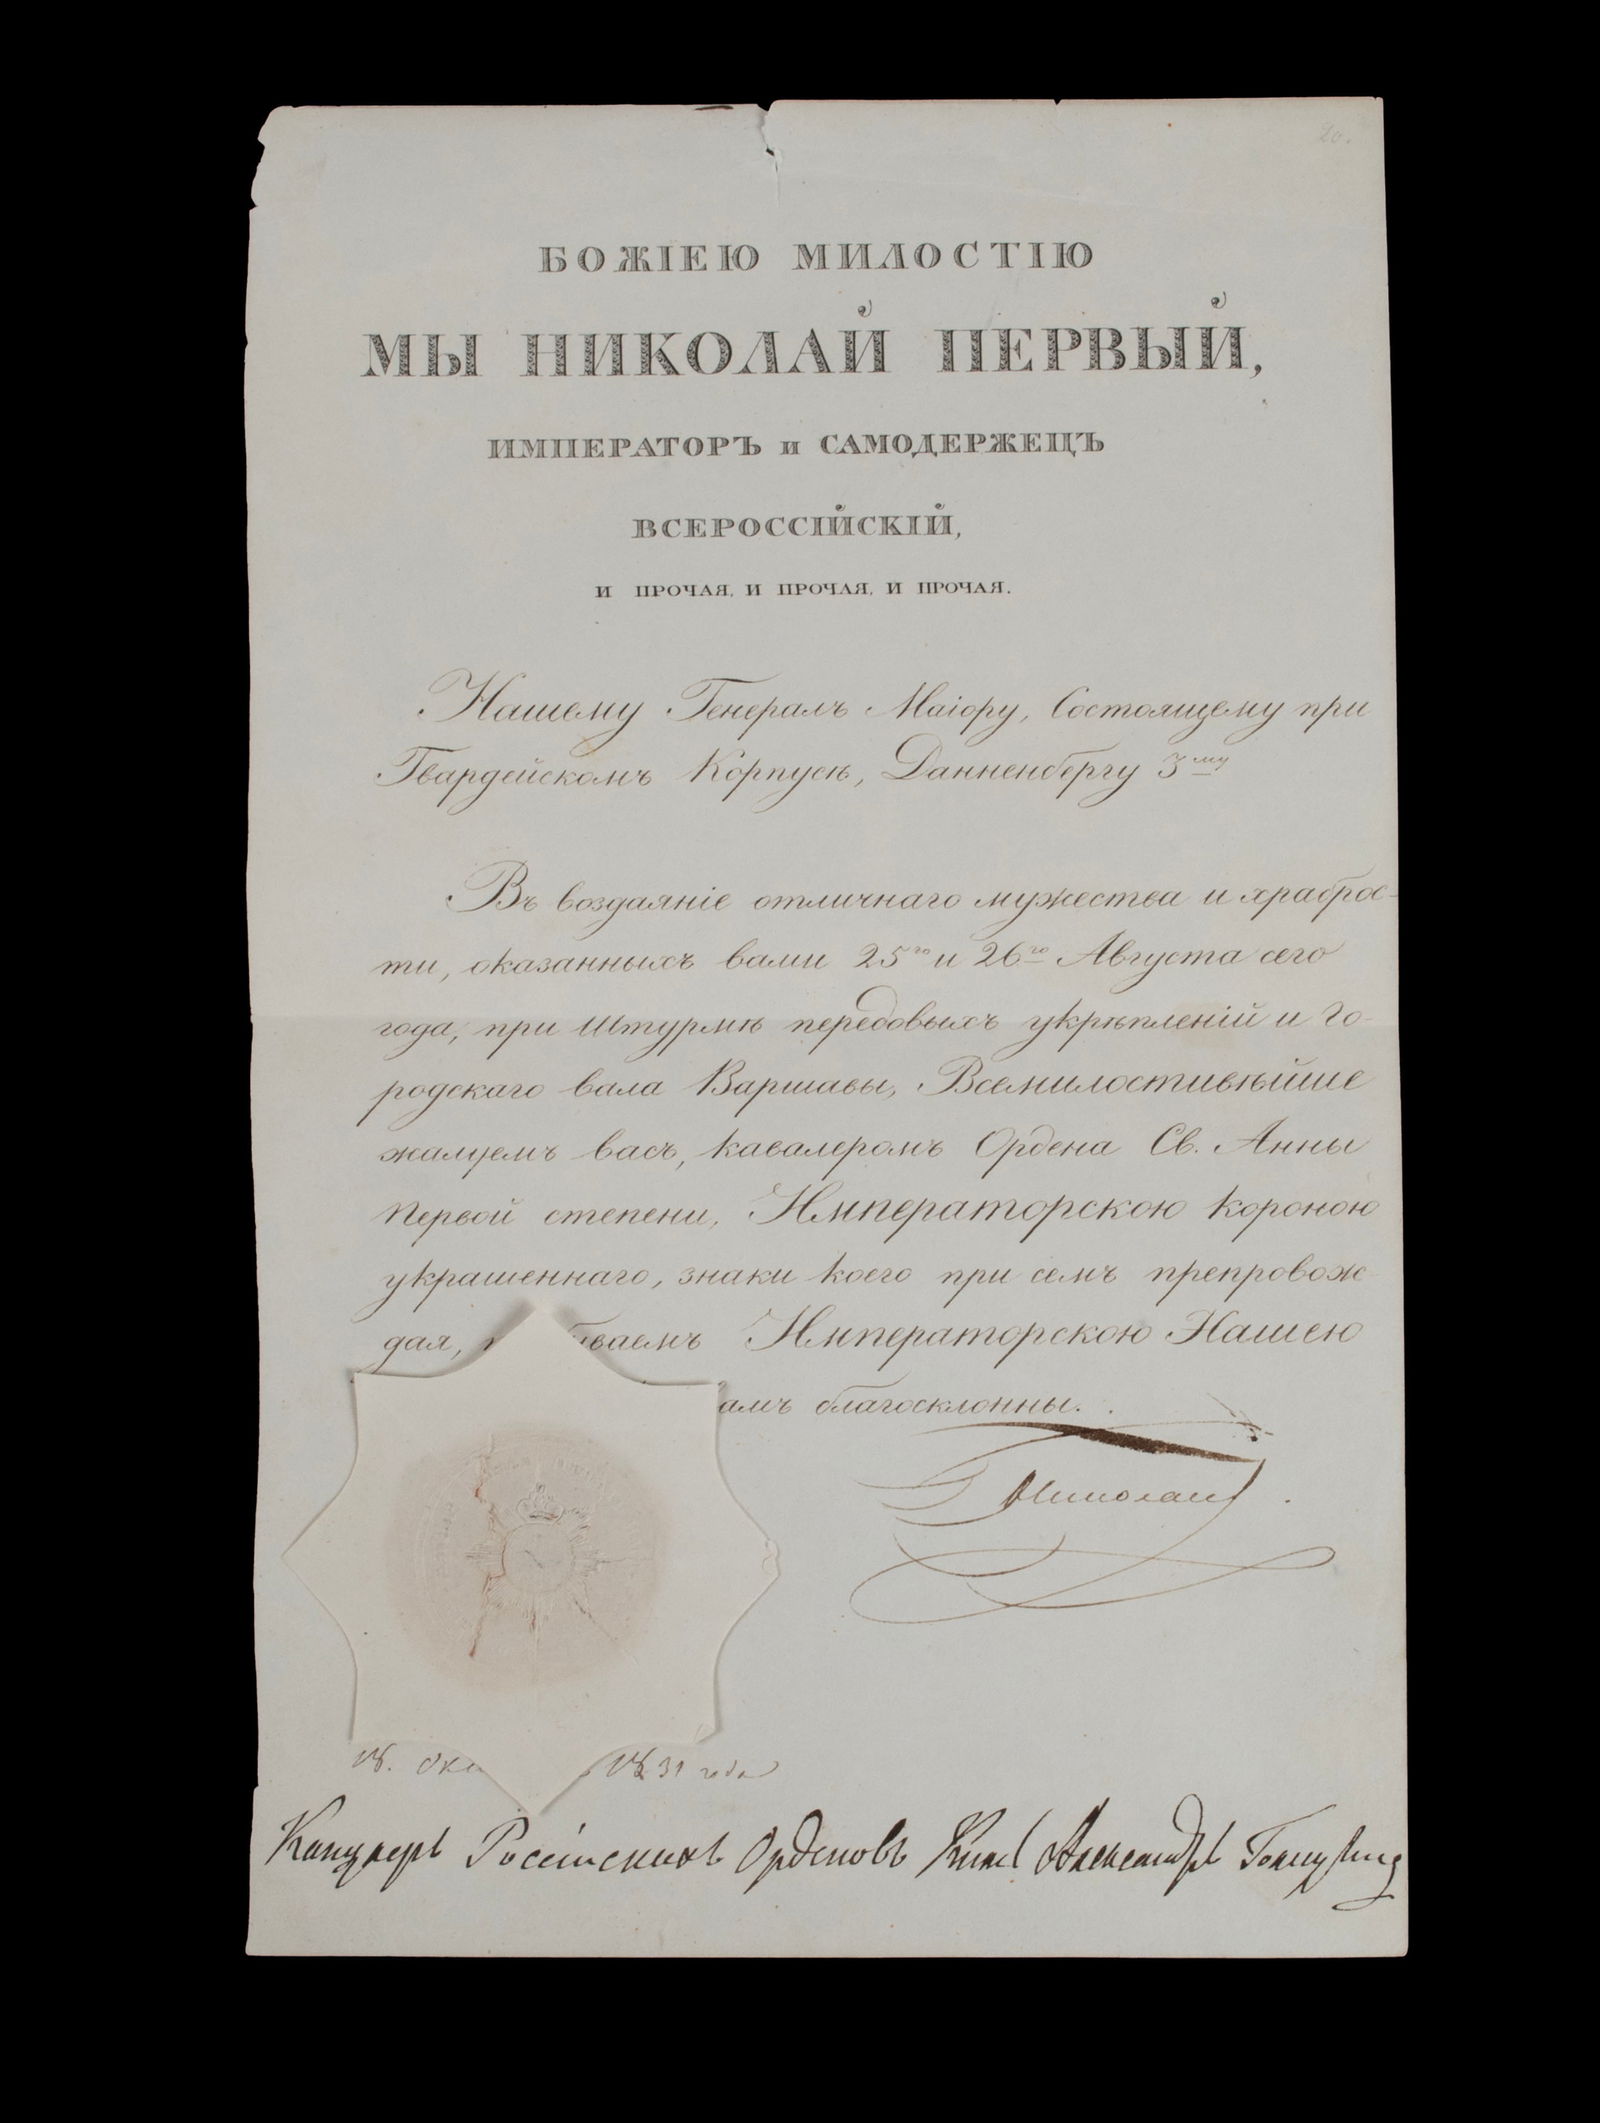 20.
БОЖІЕЮ МИЛОСТІЮ
МЫ НИКОЛАЙ ПЕРВЫЙ,
ИМПЕРАТОРЪ и САМОДЕРЖЕЦЪ
ВСЕРОССІЙСКІЙ,
И ПРОЧАЯ, И ПРОЧАЯ, И ПРОЧАЯ.
Нашему Генералъ Маіору, Состоящему при
Гвардейскомъ Корпусѣ, Данненбергу 3му
Въ воздаяніе отличнаго мужества и храброс-
ти, оказанныхъ вами 25го и 26го Августа сего
года, при штурмѣ передовыхъ укрѣпленій и го-
родскаго вала Варшавы, Всемилостивѣйше
жалуемъ васъ, кавалеромъ Ордена Св. Анны
первой степени, Императорскою короною
украшеннаго, знаки коего при семъ препровож-
дая, ваемъ Императорскою Нашею
амъ благосклонны.
Николай
18. Ок 1831 года
Канцлеръ Россійскихъ Орденовъ Князь Александръ Голицынъ